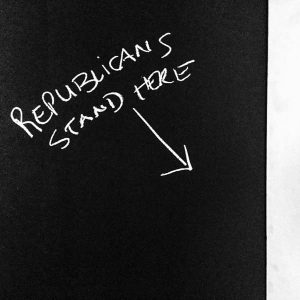 REPUBLICANS
STAND HERE